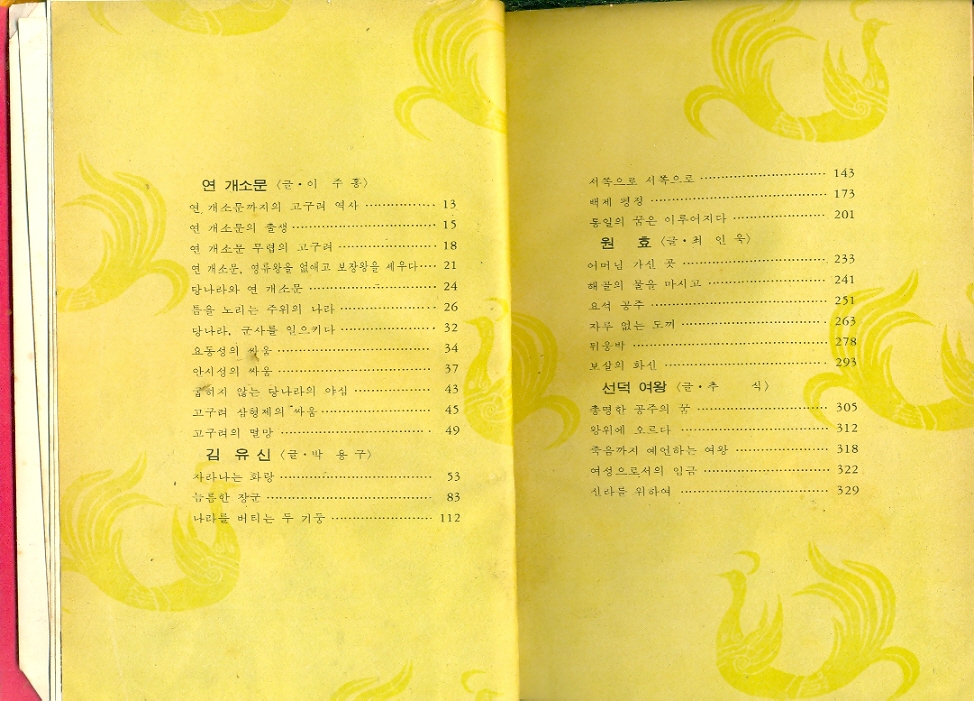 연 개소문 〈글·이 주 홍〉
연 개소문까지의 고구려 역사 ················ 13
연 개소문의 출생 ································ 15
연 개소문 무렵의 고구려 ······················ 18
연 개소문, 영류왕을 없애고 보장왕을 세우다 ···· 21
당나라와 연 개소문 ···························· 24
틈을 노리는 주위의 나라 ······················ 26
당나라, 군사를 일으키다 ······················ 32
요동성의 싸움 ···································· 34
안시성의 싸움 ···································· 37
굽히지 않는 당나라의 야심 ··················· 43
고구려 삼형제의 싸움 ·························· 45
고구려의 멸망 ···································· 49
김 유신 〈글·박 용구〉
자라나는 화랑 ···································· 53
늠름한 장군 ······································· 83
나라를 버티는 두 기둥 ························ 112
서쪽으로 서쪽으로 ······························ 143
백제 평정 ·········································· 173
통일의 꿈은 이루어지다 ······················· 201
원 효 〈글·최 인 욱〉
어머님 가신 곳 ··································· 233
해골의 물을 마시고 ····························· 241
요석 공주 ·········································· 251
자루 없는 도끼 ··································· 263
뒤웅박 ·············································· 278
보살의 화신 ······································· 293
선덕 여왕 〈글·추 식〉
총명한 공주의 꿈 ································ 305
왕위에 오르다 ···································· 312
죽음까지 예언하는 여왕 ······················· 318
여성으로서의 임금 ······························ 322
신라를 위하여 ···································· 329